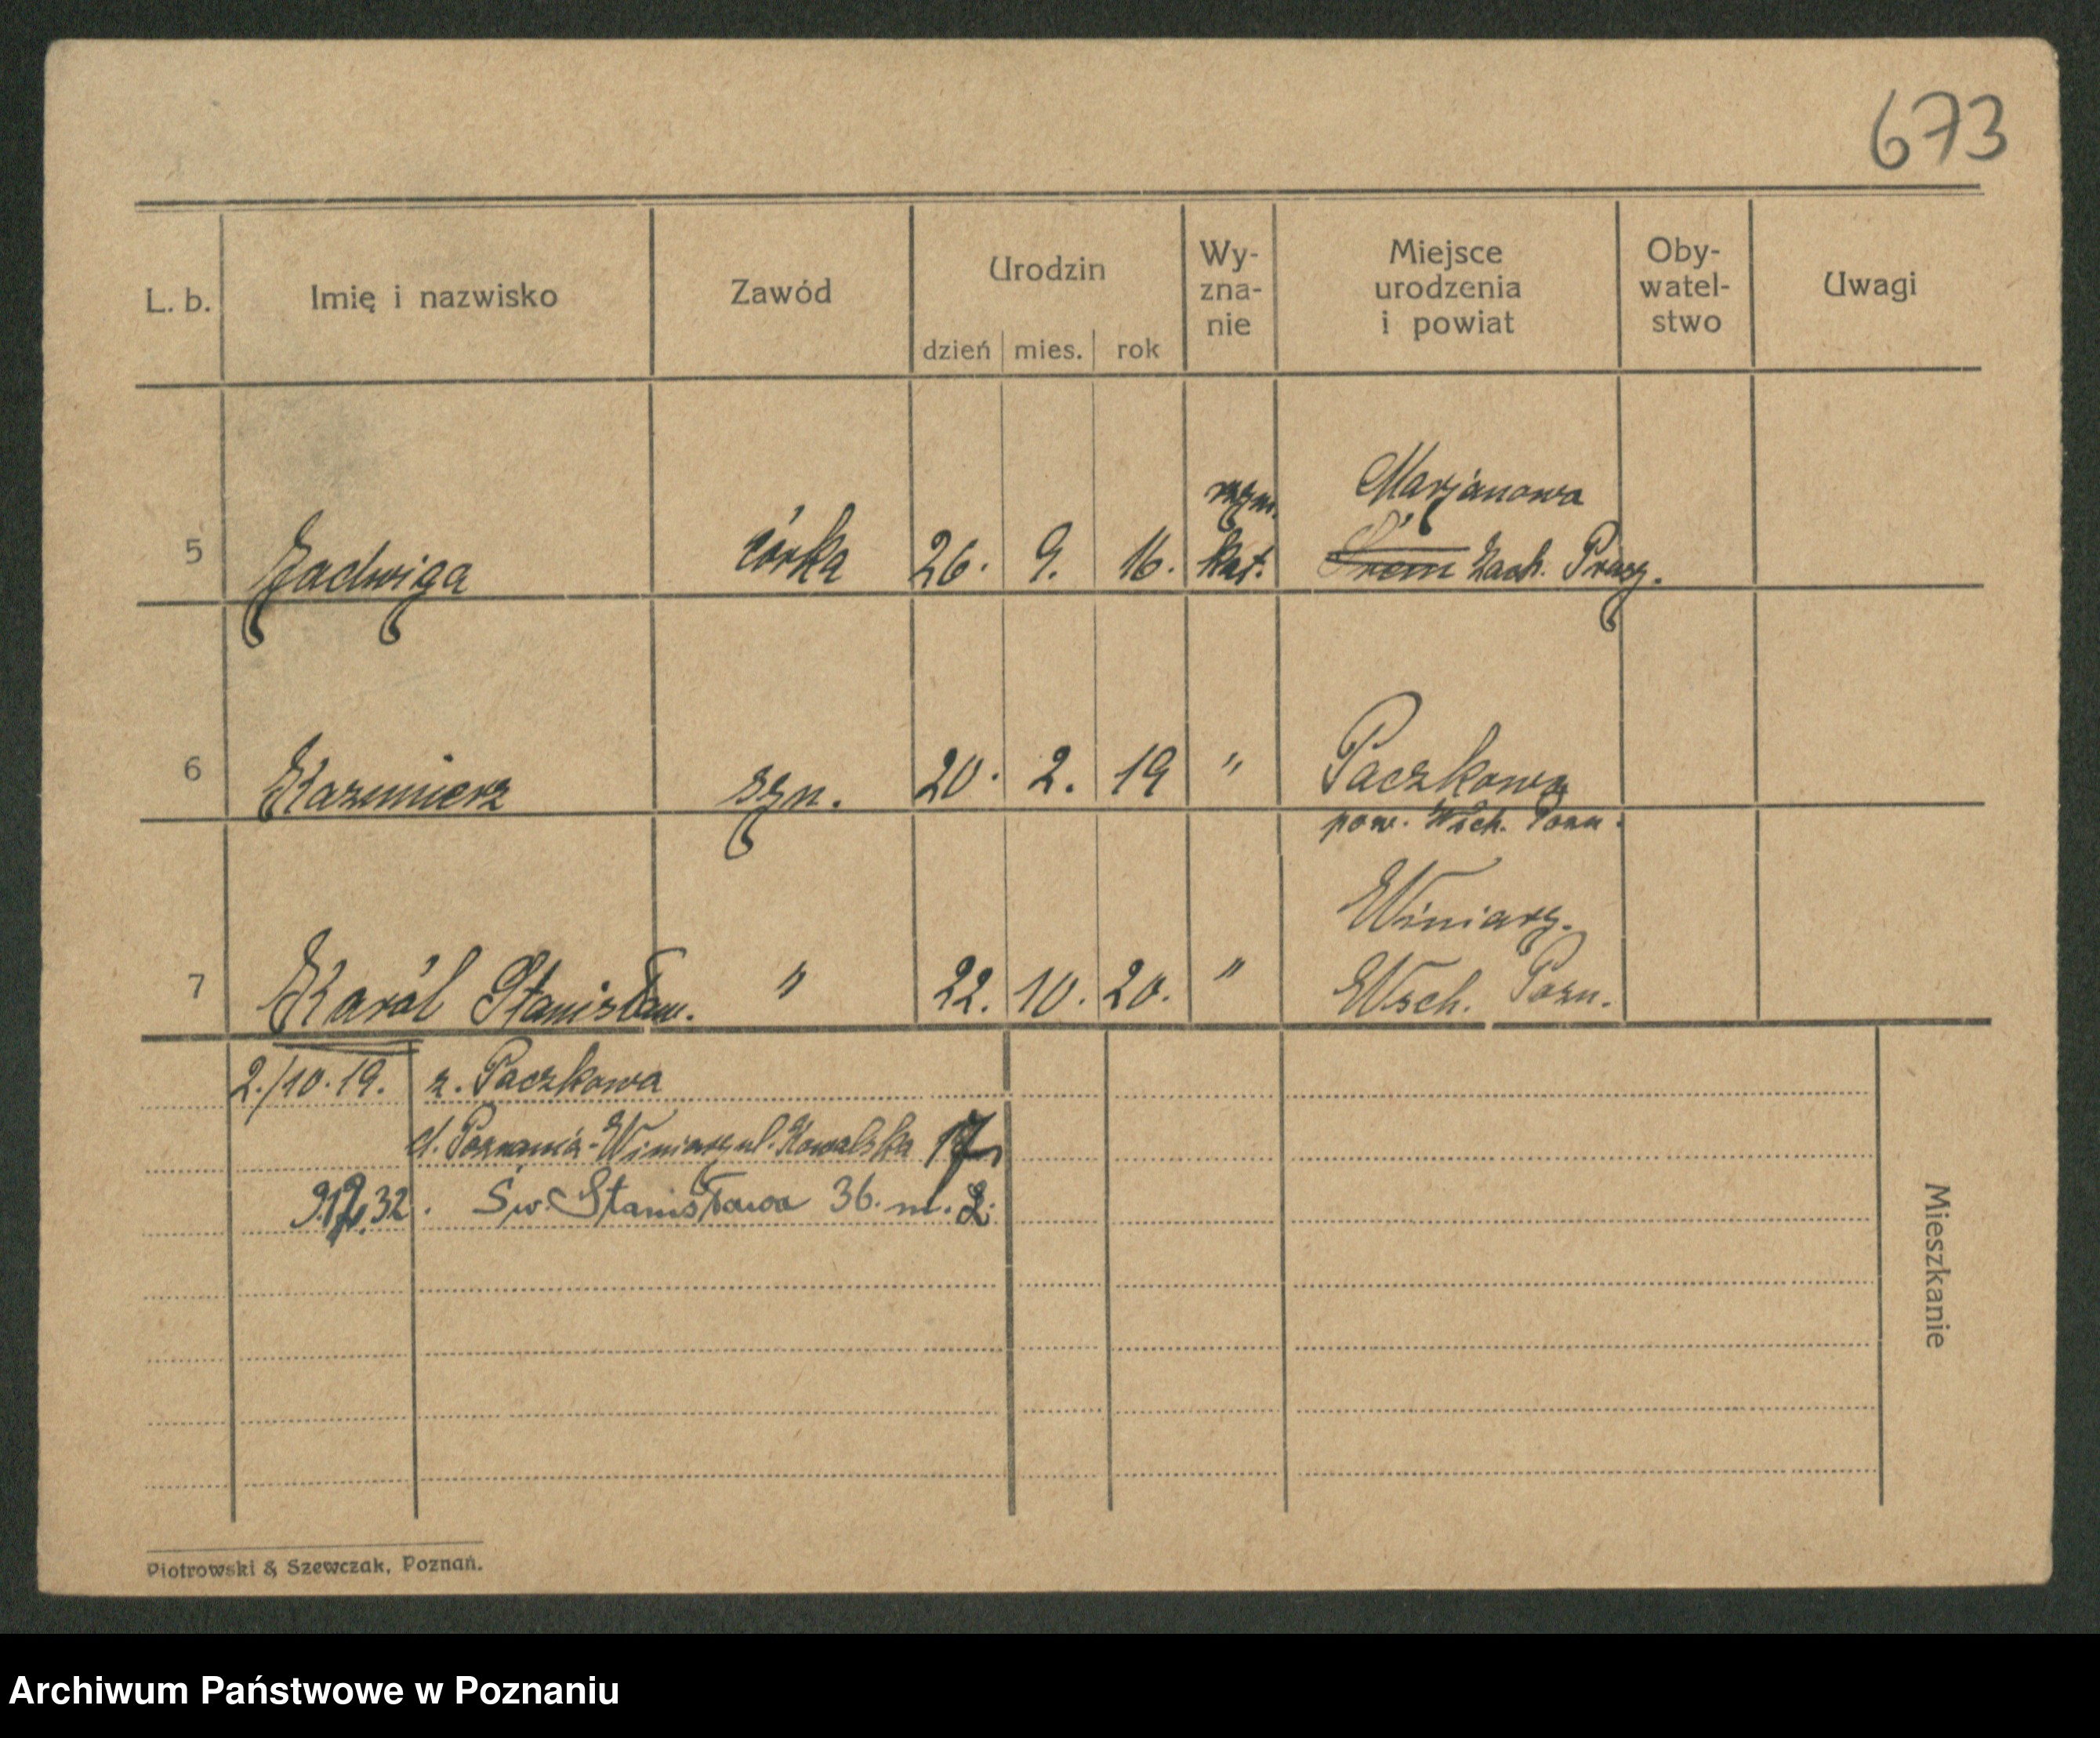 673
L. b. Imię i nazwisko Zawód Urodzin Wy- Miejsce Oby- Uwagi
zna- urodzenia watel-
nie i powiat stwo
dzień mies. rok
Marjanowo
rzym.
5 Jadwiga córka 26. 9. 16. kat. Śrem Zach. Prusy.
6 Kazimierz syn. 20. 2. 19 " Paczkowo
pow. Wsch. Pozn.
Winiary.
7 Karól Stanisław. " 22. 10. 20. " Wsch. Pozn.
2./10.19. z. Paczkowa
d. Poznania-Winiary ul. Kowalska 17
32. Św. Stanisława 36. m. 2.
Mieszkanie
Piotrowski & Szewczak, Poznań.
Archiwum Państwowe w Poznaniu